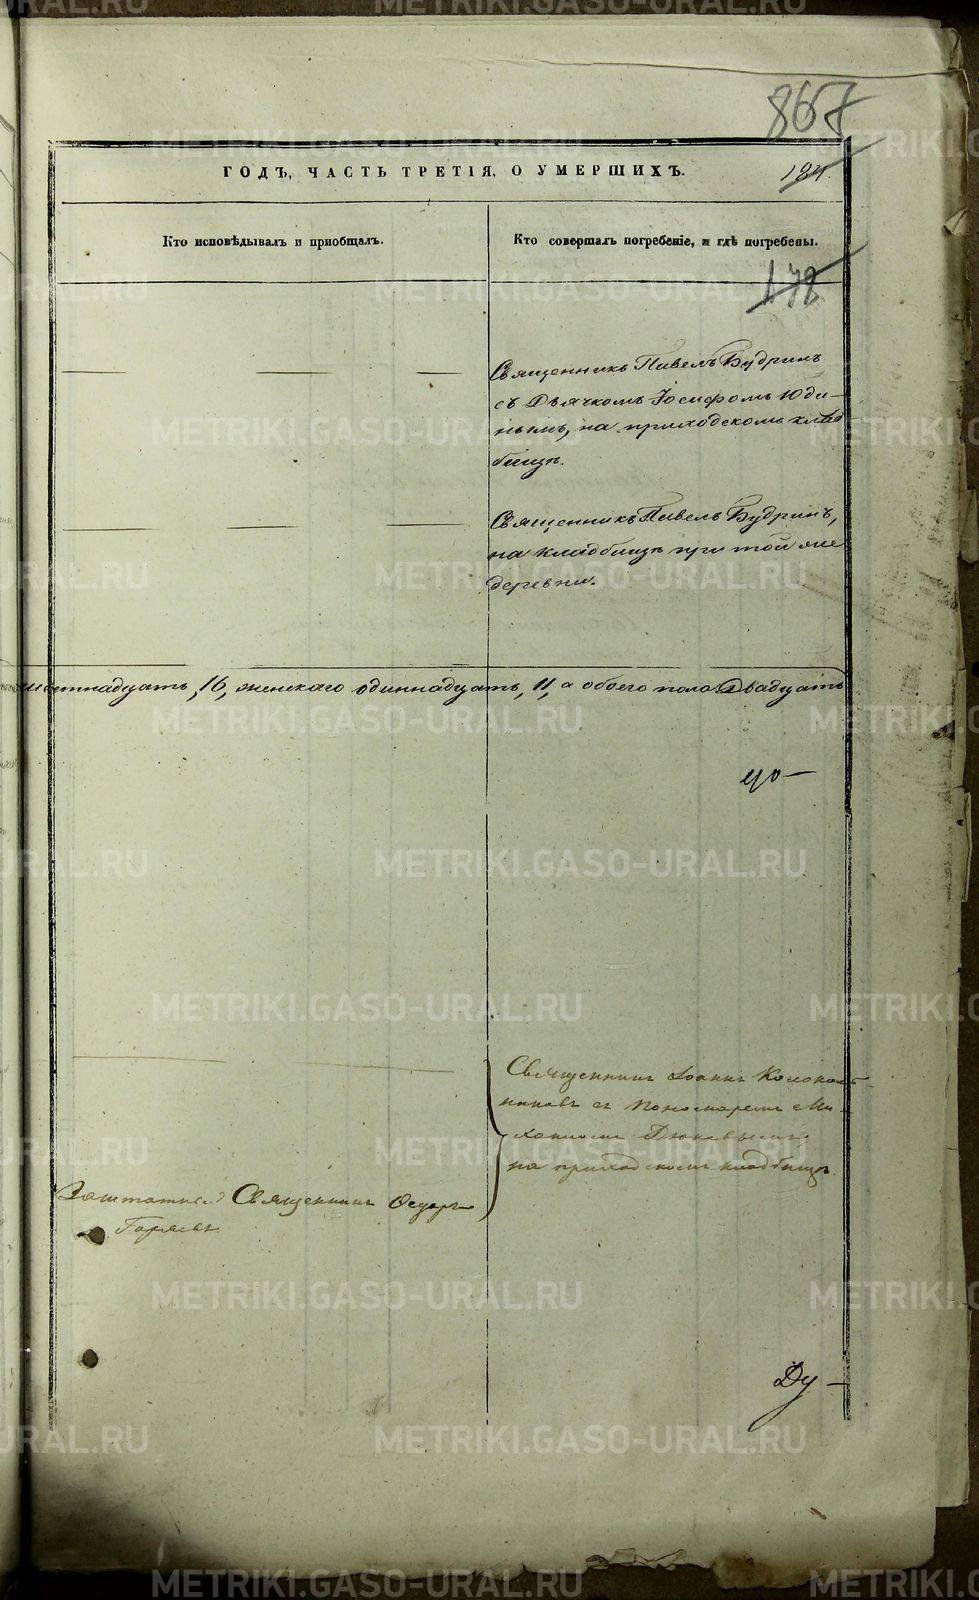 867
ГОДЪ, ЧАСТЬ ТРЕТІЯ, О УМЕРШИХЪ.
184.
Кто исповѣдывалъ и пріобщалъ.
Кто совершалъ погребеніе, и гдѣ погребены.
178
Священникъ Павелъ Будринъ
съ Дьячкомъ Іосифомъ Юди-
нымъ, на приходскомъ клад
бищѣ.
Священникъ Павелъ Будринъ,
на кладбищѣ при той же
деревни.
шестнадцать, 16, женскаго одиннадцать, 11, а обоего пола Двадцать
Священникъ Іоаннъ Колоколь-
никовъ съ Пономаремъ Ми-
хаиломъ
на приходскомъ кладбищѣ.
Заштатный Священникъ Ѳедоръ
Горяевъ
Ду-
METRIKI.GASO-URAL.RU